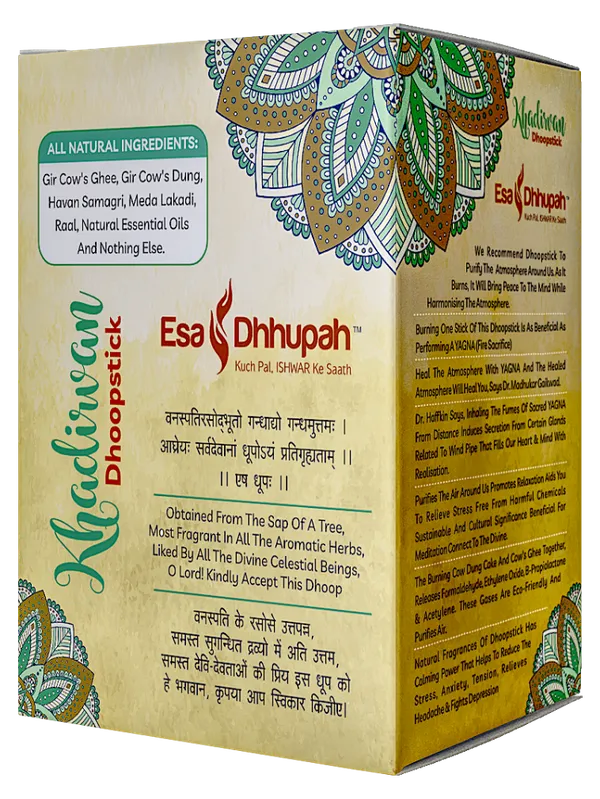 ALL NATURAL INGREDIENTS:
Gir Cow's Ghee, Gir Cow's Dung,
Havan Samagri, Meda Lakadi,
Raal, Natural Essential Oils
And Nothing Else.
Khadirwan
Dhoopstick
Esa Dhhupah™
Kuch Pal, ISHWAR Ke Saath
वनस्पतिरसोद्भूतो गन्धाद्यो गन्धमुत्तमः ।
आघ्रेयः सर्वदेवानां धूपोऽयं प्रतिगृह्यताम् ।।
।। एष धूपः ।।
Obtained From The Sap Of A Tree,
Most Fragrant In All The Aromatic Herbs,
Liked By All The Divine Celestial Beings,
O Lord! Kindly Accept This Dhoop
वनस्पति के रसोसे उत्तपन्न,
समस्त सुगन्धित द्रव्यो में अति उत्तम,
समस्त देवि-देवताओं की प्रिय इस धूप को
हे भगवान, कृपया आप स्विकार किजीए।
Khadirwan
Dhoopstick
Esa Dhhupah™
Kuch Pal, ISHWAR Ke Saath
We Recommend Dhoopstick To
Purify The Atmosphere Around Us. As It
Burns, It Will Bring Peace To The Mind While
Harmonising The Atmosphere.
Burning One Stick Of This Dhoopstick Is As Beneficial As
Performing A YAGNA (Fire Sacrifice)
Heal The Atmosphere With YAGNA And The Healed
Atmosphere Will Heal You, Says Dr. Madhukar Gaikwad.
Dr. Haffkin Says, Inhaling The Fumes Of Sacred YAGNA
From Distance Induces Secretion From Certain Glands
Related To Wind Pipe That Fills Our Heart & Mind With
Realisation.
Purifies The Air Around Us Promotes Relaxation Aids You
To Relieve Stress Free From Harmful Chemicals
Sustainable And Cultural Significance Beneficial For
Meditation Connect To The Divine.
The Burning Cow Dung Cake And Cow's Ghee Together,
Releases Formaldehyde, Ethylene Oxide, B-Propiolactone
& Acetylene. These Gases Are Eco-Friendly And
Purifies Air.
Natural Fragrances Of Dhoopstick Has
Calming Power That Helps To Reduce The
Stress, Anxiety, Tension, Relieves
Headache & Fights Depression